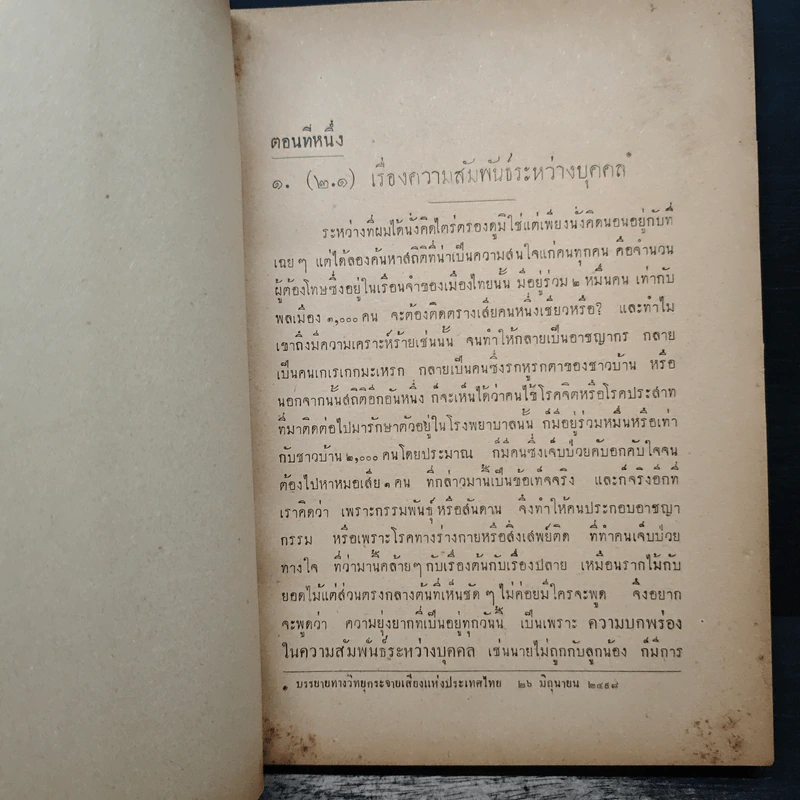 ตอนที่หนึ่ง
๑. (๒.๑) เรื่องความสัมพันธ์ระหว่างบุคคล*
ระหว่างที่ผมได้นั่งคิดไตร่ตรองดูมิใช่แต่เพียงนั่งคิดนอนอยู่กับที่
เฉยๆ แต่ได้ลองค้นหาสถิติที่น่าเป็นความสนใจแก่คนทุกคน คือจำนวน
ผู้ต้องโทษซึ่งอยู่ในเรือนจำของเมืองไทยนั้น มีอยู่ร่วม ๒ หมื่นคน เท่ากับ
พลเมือง ๑,๐๐๐ คน จะต้องติดตรางเสียคนหนึ่งเชียวหรือ? และทำไม
เขาถึงมีความเคราะห์ร้ายเช่นนั้น จนทำให้กลายเป็นอาชญากร กลาย
เป็นคนเกเรเกกมะเหรก กลายเป็นคนซึ่งรกหูรกตาของชาวบ้าน หรือ
นอกจากนั้นสถิติอีกอันหนึ่ง ก็จะเห็นได้ว่าคนไข้โรคจิตหรือโรคประสาท
ที่มาติดต่อไปมารักษาตัวอยู่ในโรงพยาบาลนั้น ก็มีอยู่ร่วมหมื่นหรือเท่า
กับชาวบ้าน ๒,๐๐๐ คนโดยประมาณ ก็มีคนซึ่งเจ็บป่วยคับอกคับใจจน
ต้องไปหาหมอเสีย ๑ คน ที่กล่าวมานี้เป็นข้อเท็จจริง และก็จริงอีกที่
เราคิดว่า เพราะกรรมพันธุ์ หรือสันดาน จึงทำให้คนประกอบอาชญา
กรรม หรือเพราะโรคทางร่างกายหรือสิ่งเสพย์ติด ที่ทำคนเจ็บป่วย
ทางใจ ที่ว่ามานี้คล้ายๆ กับเรื่องต้นกับเรื่องปลาย เหมือนรากไม้กับ
ยอดไม้แต่ส่วนตรงกลางต้นที่เห็นชัดๆ ไม่ค่อยมีใครจะพูด จึงอยาก
จะพูดว่า ความยุ่งยากที่เป็นอยู่ทุกวันนี้ เป็นเพราะ ความบกพร่อง
ในความสัมพันธ์ระหว่างบุคคล เช่นนายไม่ถูกกับลูกน้อง ก็มีการ
* บรรยายทางวิทยุกระจายเสียงแห่งประเทศไทย ๒๖ มิถุนายน ๒๔๙๘